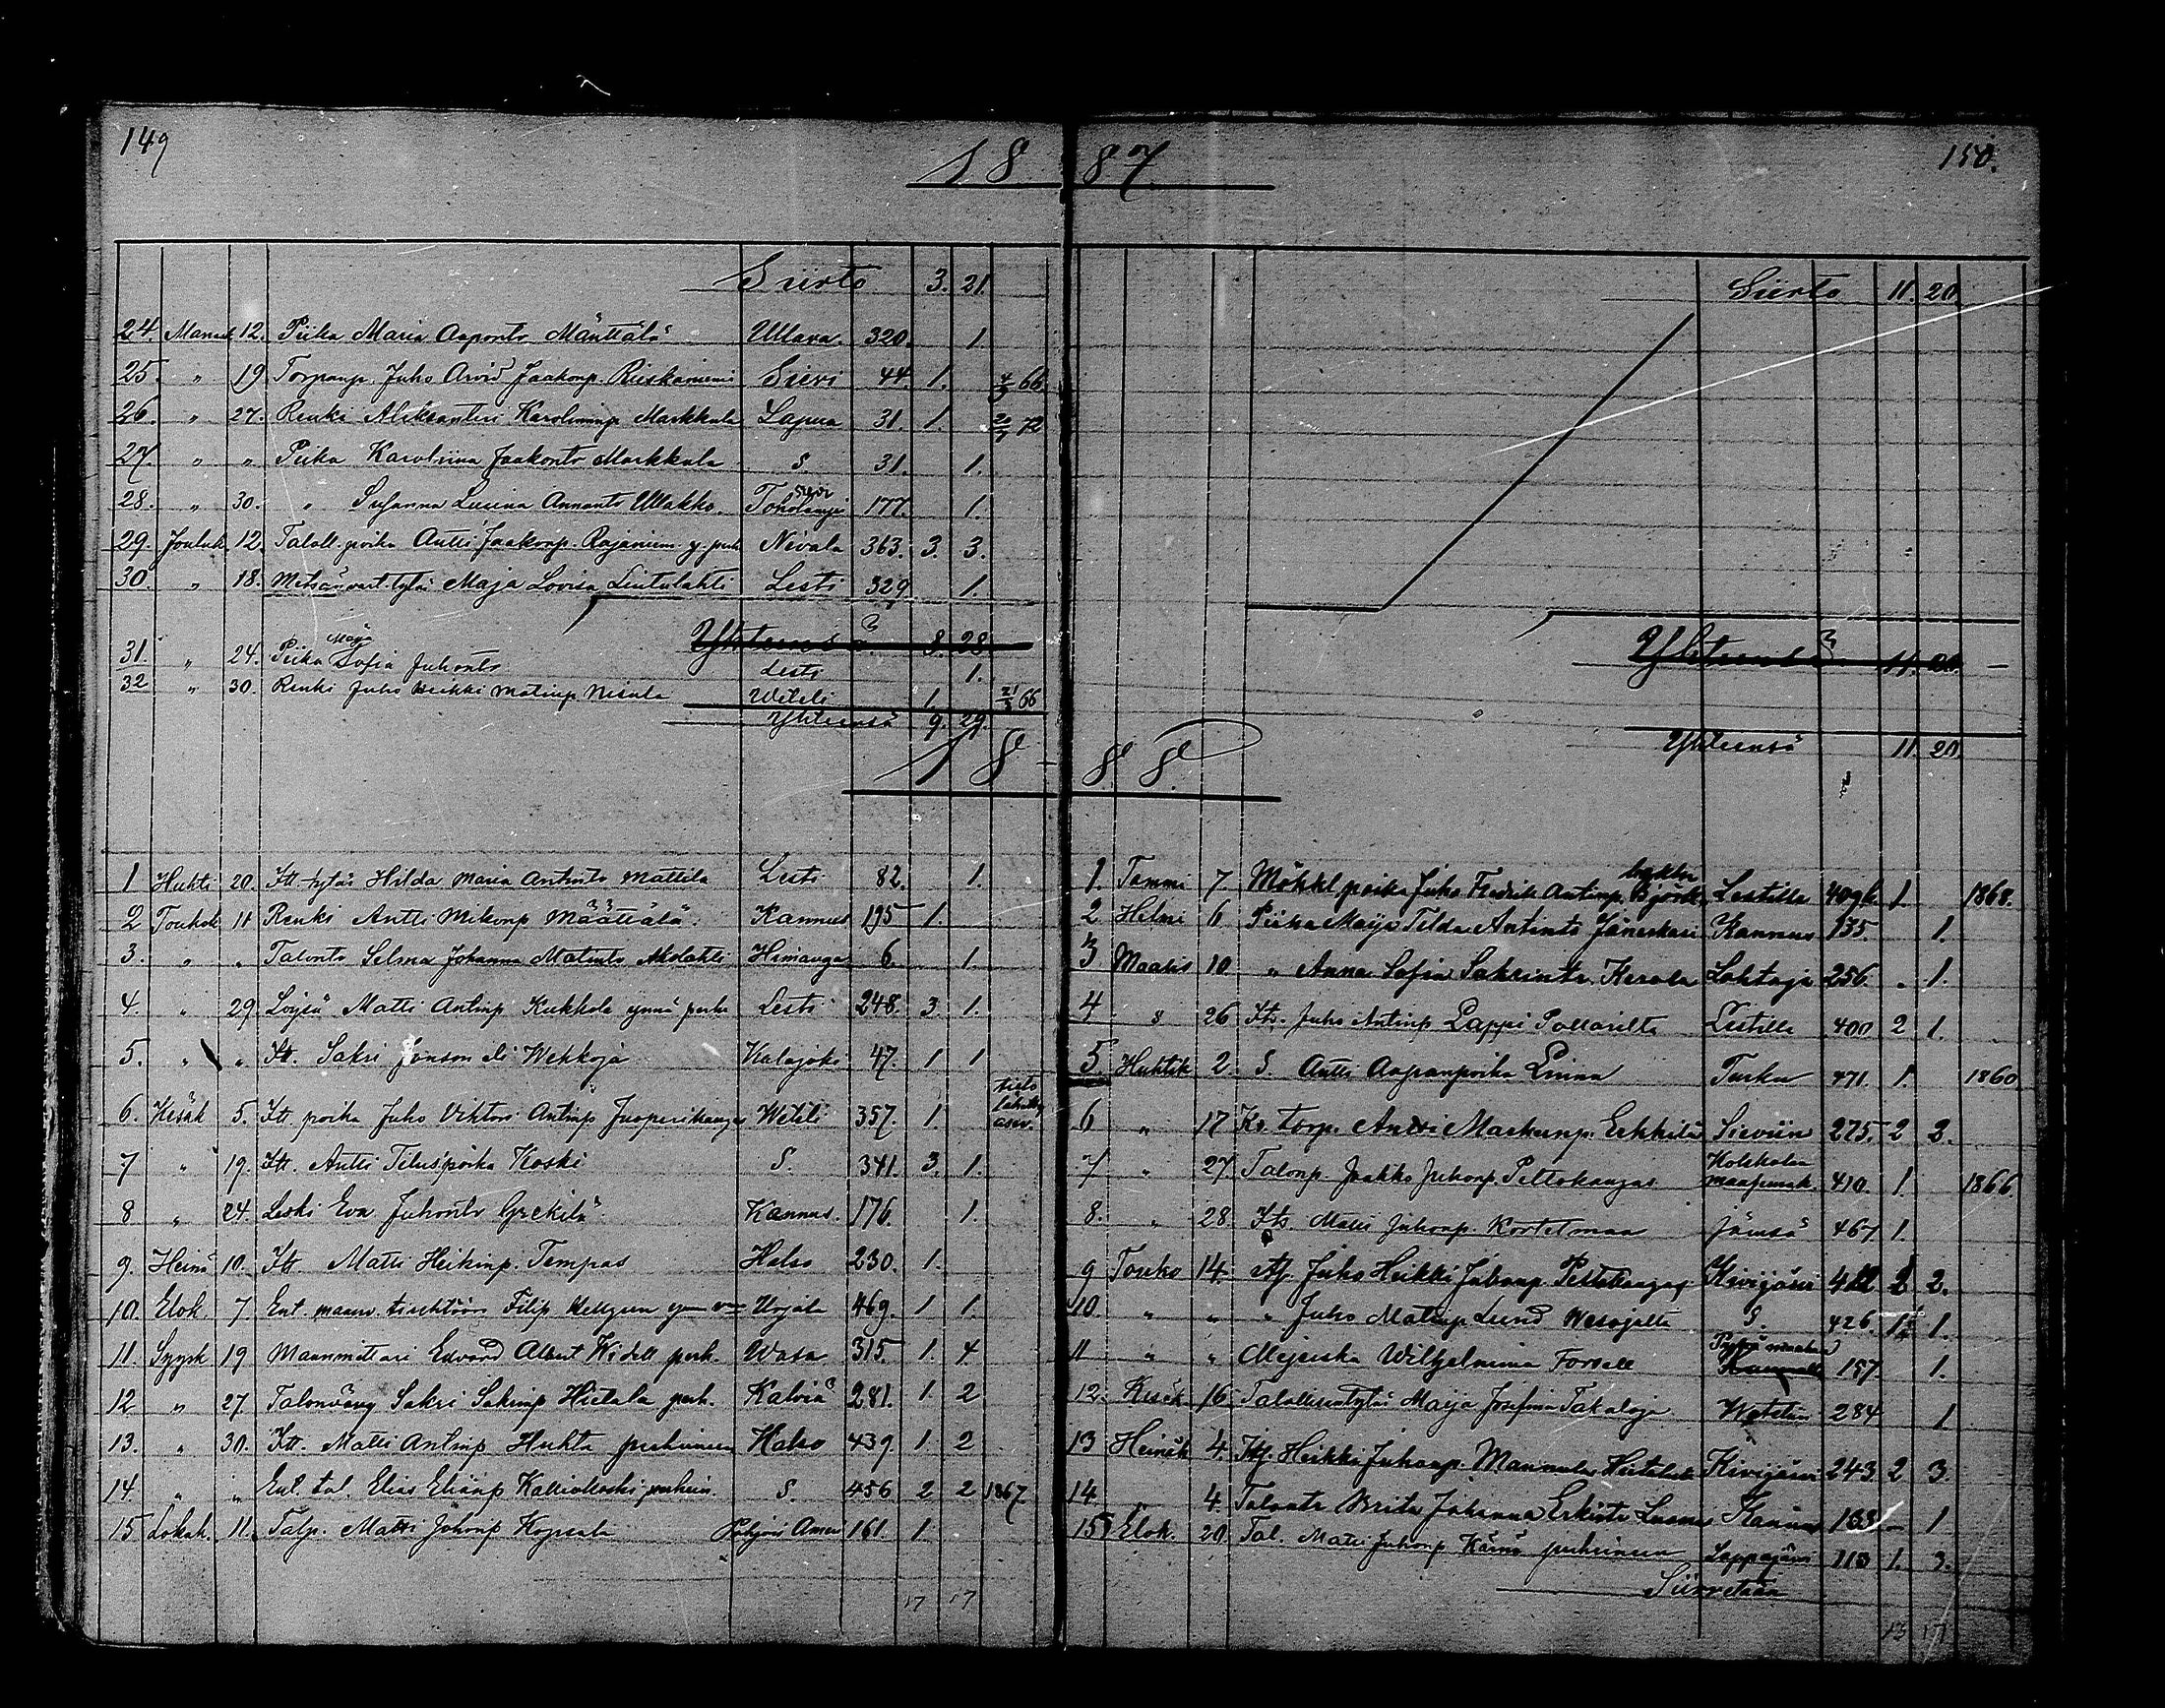 149
18 87
150.
Siirto 3. 21.
24. Marrask 12. Piika Maria Aapontr Mänttälä Ullava. 320. 1.
25. " 19 Torpanp. Juho Arvid Jaakonp. Sievi 44 1. 66
26. " 27. Renki Aleksanteri Markkula Lapua 31. 1. 72
27. " " Piika Karoliina Jaakontr Markkula S 31. 1.
28. " 30. " Susanna Lusina Annantr Ullakko. Toholampi 177. 1.
29. Jouluk. 12. Taloll. poika Antti Jaakonp. Rajaniemi y. perh Nivala 363. 3. 3.
30. " 18. tytär Maja Lovisa Lintulahti Lesti 329 1.
Yhteensä 8. 28.
31. " 24. Piika Maija Sofia Juhontr Lesti 1.
32 " 30. Renki Juho Heikki Matinp Nisula Weteli 1. 21/3 66
Yhteensä 9. 29.
Siirto 11. 20
Yhteensä 11. 20.
Yhteensä 11 20
18 88
1 Huhti 20. Itt. tytär Hilda Maria Antintr Mattila Lesti 82. 1.
2 Toukok 11 Renki Antti Mikonp Määttälä. Kannus 195 1.
3. " " Talontr Selma Johanna Matintr Himanga 6. 1.
4. " 29 Loysä Matti Antinp Kukkola ynnä perhe Lesti 248. 3. 1.
5. " " Itt. Sakri Jonson eli Wehkoja Kalajoki 47. 1 1
6. Kesäk 5. Itt. poika Juho Vihtori Antinp Weteli 357. 1.
7 " 19. Itt. Antti Koski S. 341. 3. 1.
8 " 24. Leski Eva Juhontr Grekilä Kannus. 176. 1.
9. Heinä 10. Itt. Matti Heikinp. Tempas Halso 230. 1.
10. Elok. 7. Ent. Filip Hellgren Urjala 469. 1 1.
11. Syysk 19 Maanmittari Edvard Albert perh. Wasa 315. 1. 4.
12 " 27. Talonvävy Sakri Sakrinp Hietala perh. Kälviä 281. 1. 2
13. " 30. Itt. Matti Antinp Huhta perheineen Halso 439 1 2
14. " " Ent. tal. Elias Eliänp Kalliokoski perhein. S. 456 2 2 1867
15 Lokak. 11. Talp. Matti Juhonp Kopsala Pohjois Ameri 161. 1.
17 17
1. Tammi 7. Mökkl poika Juho Fredrik Antinp. Björk Lestille 409 1 1868.
2 Helmi 6 Piika Maija Tilda Antintr Kannus 135. 1.
3 Maalis 10 " Anna Sofia Sakrintr. Kerola Lohtaja 256. 1.
4 " 26 Its. Juho Antinp Lappi Lestille 400 2 1.
5. Huhtik 2. S. Antti Aapranpoika Linna Turku 471. 1. 1860
6 " 17 Ks. torp. Antti Markunp. Erkkilä Sieviin 275. 2 2.
7 " 27. Talonp. Jaakko Juhonp. Peltokangas 410. 1. 1866
8. " 28. Its. Matti Juhonp. Kortetmaa Jämsä 467 1.
9 Touko 14. Juho Heikki Juhanp. Peltokangas Kivijärvi 2.
10. " " " Juho Matinp. Lund S. 426. 1.
11 " " Mejerska Wilhelmina Forsell 157. 1.
12. Kesäk. 16. Talollisentytär Maija Josefina Takaloja Wetelin 284 1
13 Heinäk 4. Heikki Juhanp. Mannula Kivijärvi 243. 2 3.
14 4 Talontr Brita Johanna Kannus — 1
15 Elok. 20 Tal. Matti Juhonp perheineen Lappajärvi 113 1. 3.
Siirretään
13 17